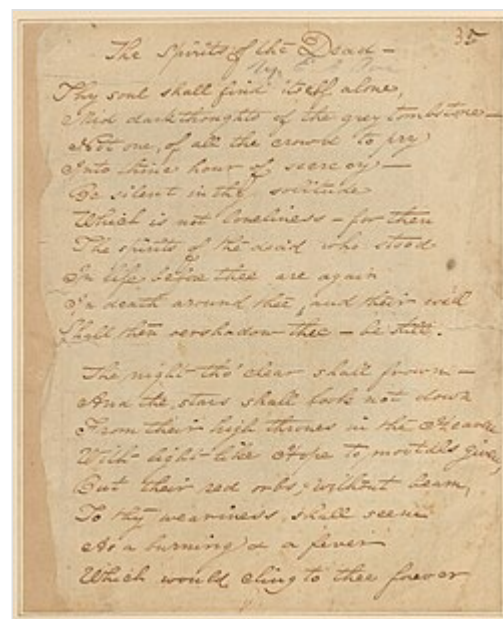 35
The Spirits of the Dead —
by E. A. Poe
Thy soul shall find itself alone
'Mid dark thoughts of the grey tombstone —
Not one, of all the crowd to pry
Into thine hour of secrecy —
Be silent in that solitude
Which is not loneliness — for then
The spirits of the dead who stood
In life before thee are again
In death around thee, and their will
Shall then overshadow thee — be still.
The night tho' clear shall frown —
And the stars shall look not down
From their high thrones in the Heaven
With light like Hope to mortals given
But their red orbs, without beam,
To thy weariness shall seem
As a burning & a fever
Which would cling to thee forever